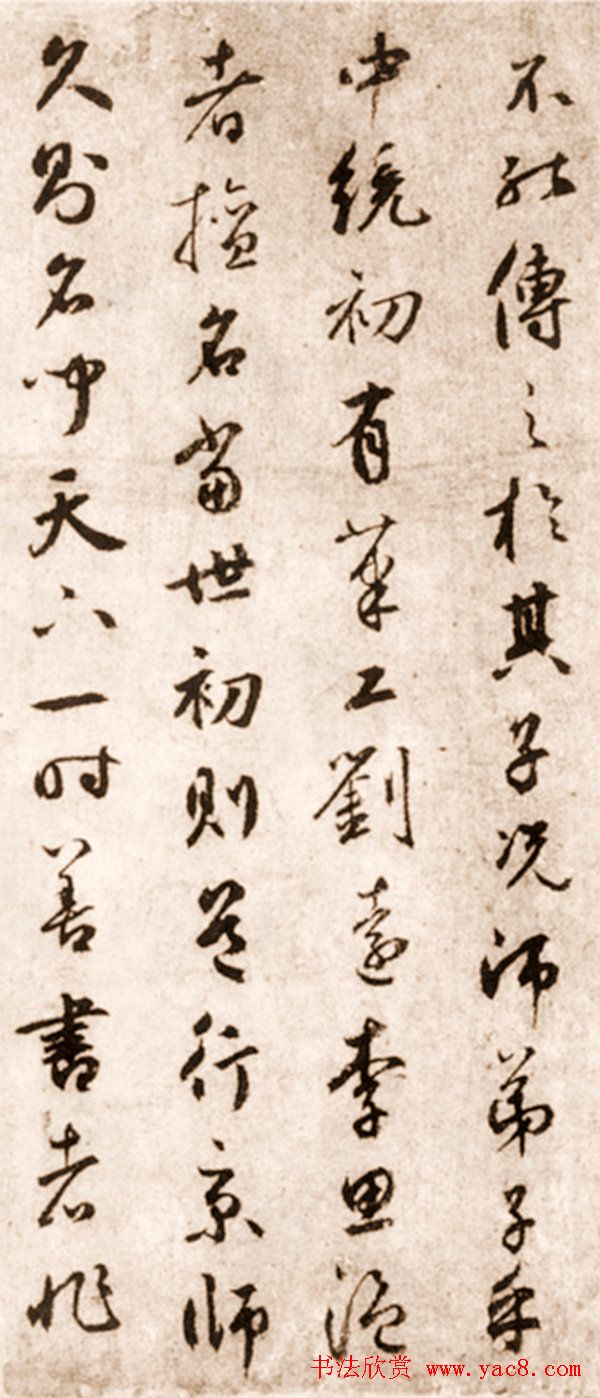 不能傳之於其子況師弟子乎
中統初有筆工劉遠李思溫
者擅名當世初則道行京師
久則名聞天下一時善書者非
书法欣赏 www.yac8.com